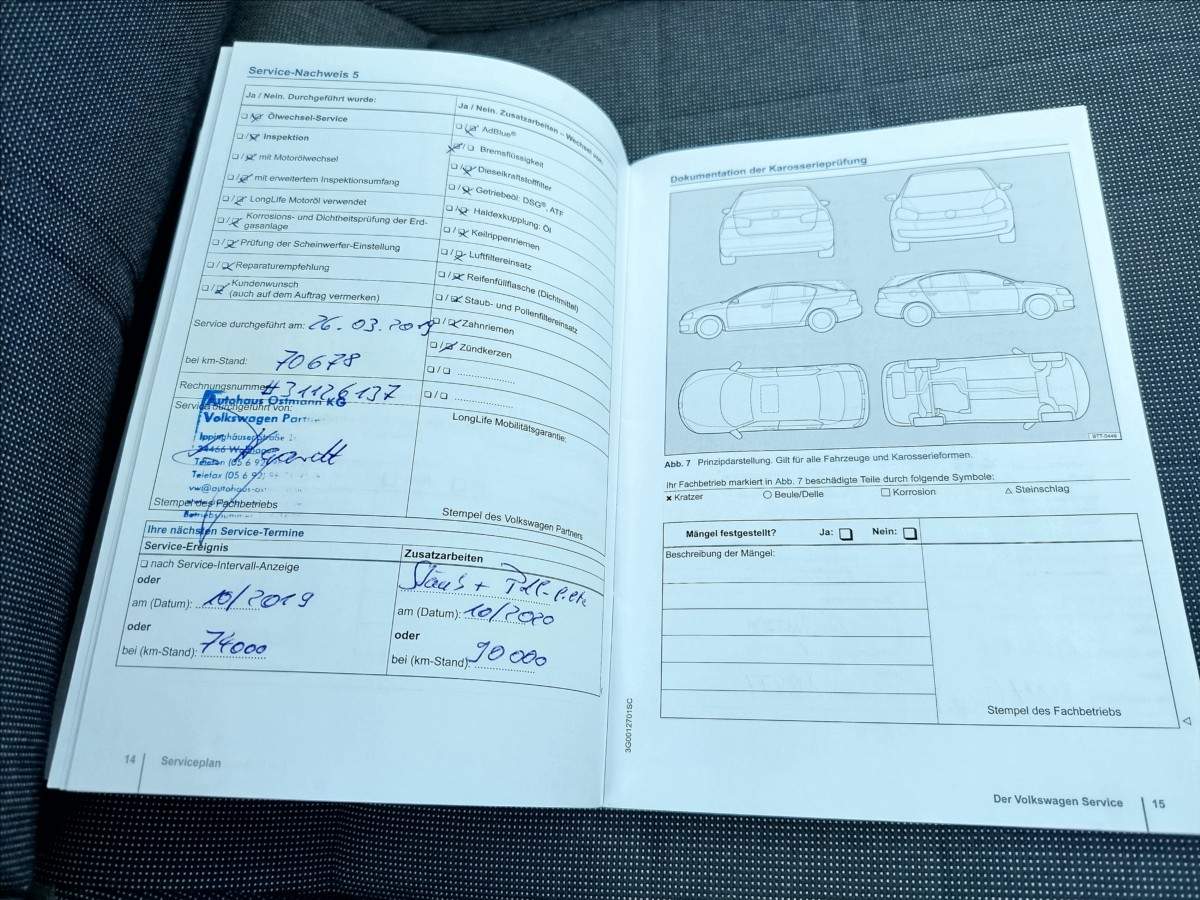 Service-Nachweis 5
Ja / Nein. Durchgeführt wurde:
❏ / ❏ Ölwechsel-Service
❏ / ❏ Inspektion
❏ / ❏ mit Motorölwechsel
❏ / ❏ mit erweitertem Inspektionsumfang
❏ / ❏ LongLife Motoröl verwendet
❏ / ❏ Korrosions- und Dichtheitsprüfung der Erd-
gasanlage
❏ / ❏ Prüfung der Scheinwerfer-Einstellung
❏ / ❏ Reparaturempfehlung
❏ / ❏ Kundenwunsch
(auch auf dem Auftrag vermerken)
Service durchgeführt am: 26.03.2019
bei km-Stand: 70678
Rechnungsnummer #31126137
Service durchgeführt von:
Autohaus Ostmann KG
Volkswagen Part
Ippinghäuser Straße
34466
Telefon (05 6 92)
Telefax (05 6 92)
vw@autohaus-
Stempel des Fachbetriebs
Ja / Nein. Zusatzarbeiten – Wechsel von:
❏ / ❏ AdBlue®
❏ / ❏ Bremsflüssigkeit
❏ / ❏ Dieselkraftstofffilter
❏ / ❏ Getriebeöl: DSG®, ATF
❏ / ❏ Haldexkupplung: Öl
❏ / ❏ Keilrippenriemen
❏ / ❏ Luftfiltereinsatz
❏ / ❏ Reifenfüllflasche (Dichtmittel)
❏ / ❏ Staub- und Pollenfiltereinsatz
❏ / ❏ Zahnriemen
❏ / ❏ Zündkerzen
❏ / ❏
❏ / ❏
LongLife Mobilitätsgarantie:
Stempel des Volkswagen Partners
Ihre nächsten Service-Termine
Service-Ereignis
❏ nach Service-Intervall-Anzeige
oder
am (Datum): 10/2019
oder
bei (km-Stand): 74000
Zusatzarbeiten
Staub +
am (Datum): 10/2020
oder
bei (km-Stand): 90000
14 Serviceplan
Dokumentation der Karosserieprüfung
BTT-0446
Abb. 7 Prinzipdarstellung. Gilt für alle Fahrzeuge und Karosserieformen.
Ihr Fachbetrieb markiert in Abb. 7 beschädigte Teile durch folgende Symbole:
✖ Kratzer ○ Beule/Delle □ Korrosion △ Steinschlag
Mängel festgestellt? Ja: ❏ Nein: ❏
Beschreibung der Mängel:
Stempel des Fachbetriebs
3G0012701SC
Der Volkswagen Service 15